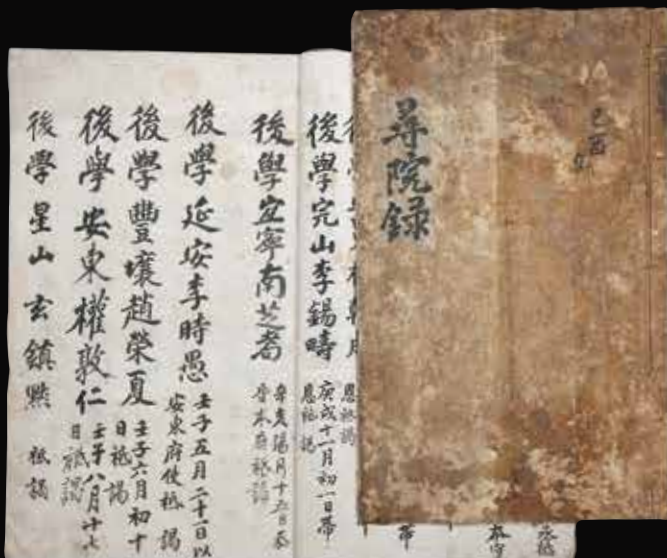 己酉
尋院錄
恩祗謁
後學完山李錫疇
庚戌十一月初一日帶
恩祗謁
後學宜寧南芝耈
辛亥陽月十五日忝
守本府祗謁
後學延安李時愚
壬子五月二十一日以
安東府使祗謁
後學豐壤趙榮夏
壬子六月初十
日祗謁
後學安東權敦仁
壬子八月十七
日祗謁
後學星山玄鎮默 祗謁